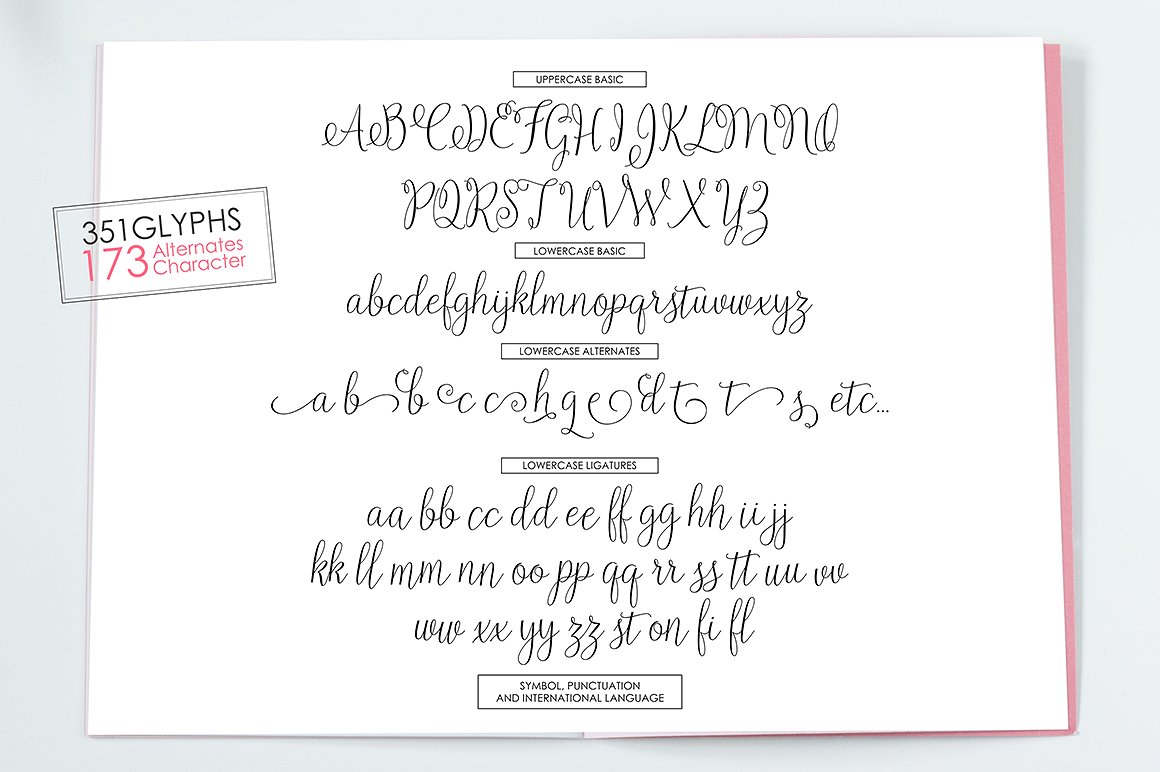 UPPERCASE BASIC
ABCDEFGHIJKLMNO
PQRSTUVWXYZ
351GLYPHS
173 Alternates
Character
LOWERCASE BASIC
abcdefghijklmnopqrstuvwxyz
LOWERCASE ALTERNATES
a b b c c h q e d t t s etc...
LOWERCASE LIGATURES
aa bb cc dd ee ff gg hh ii jj
kk ll mm nn oo pp qq rr ss tt uu vv
ww xx yy zz st on fi fl
SYMBOL, PUNCTUATION
AND INTERNATIONAL LANGUAGE